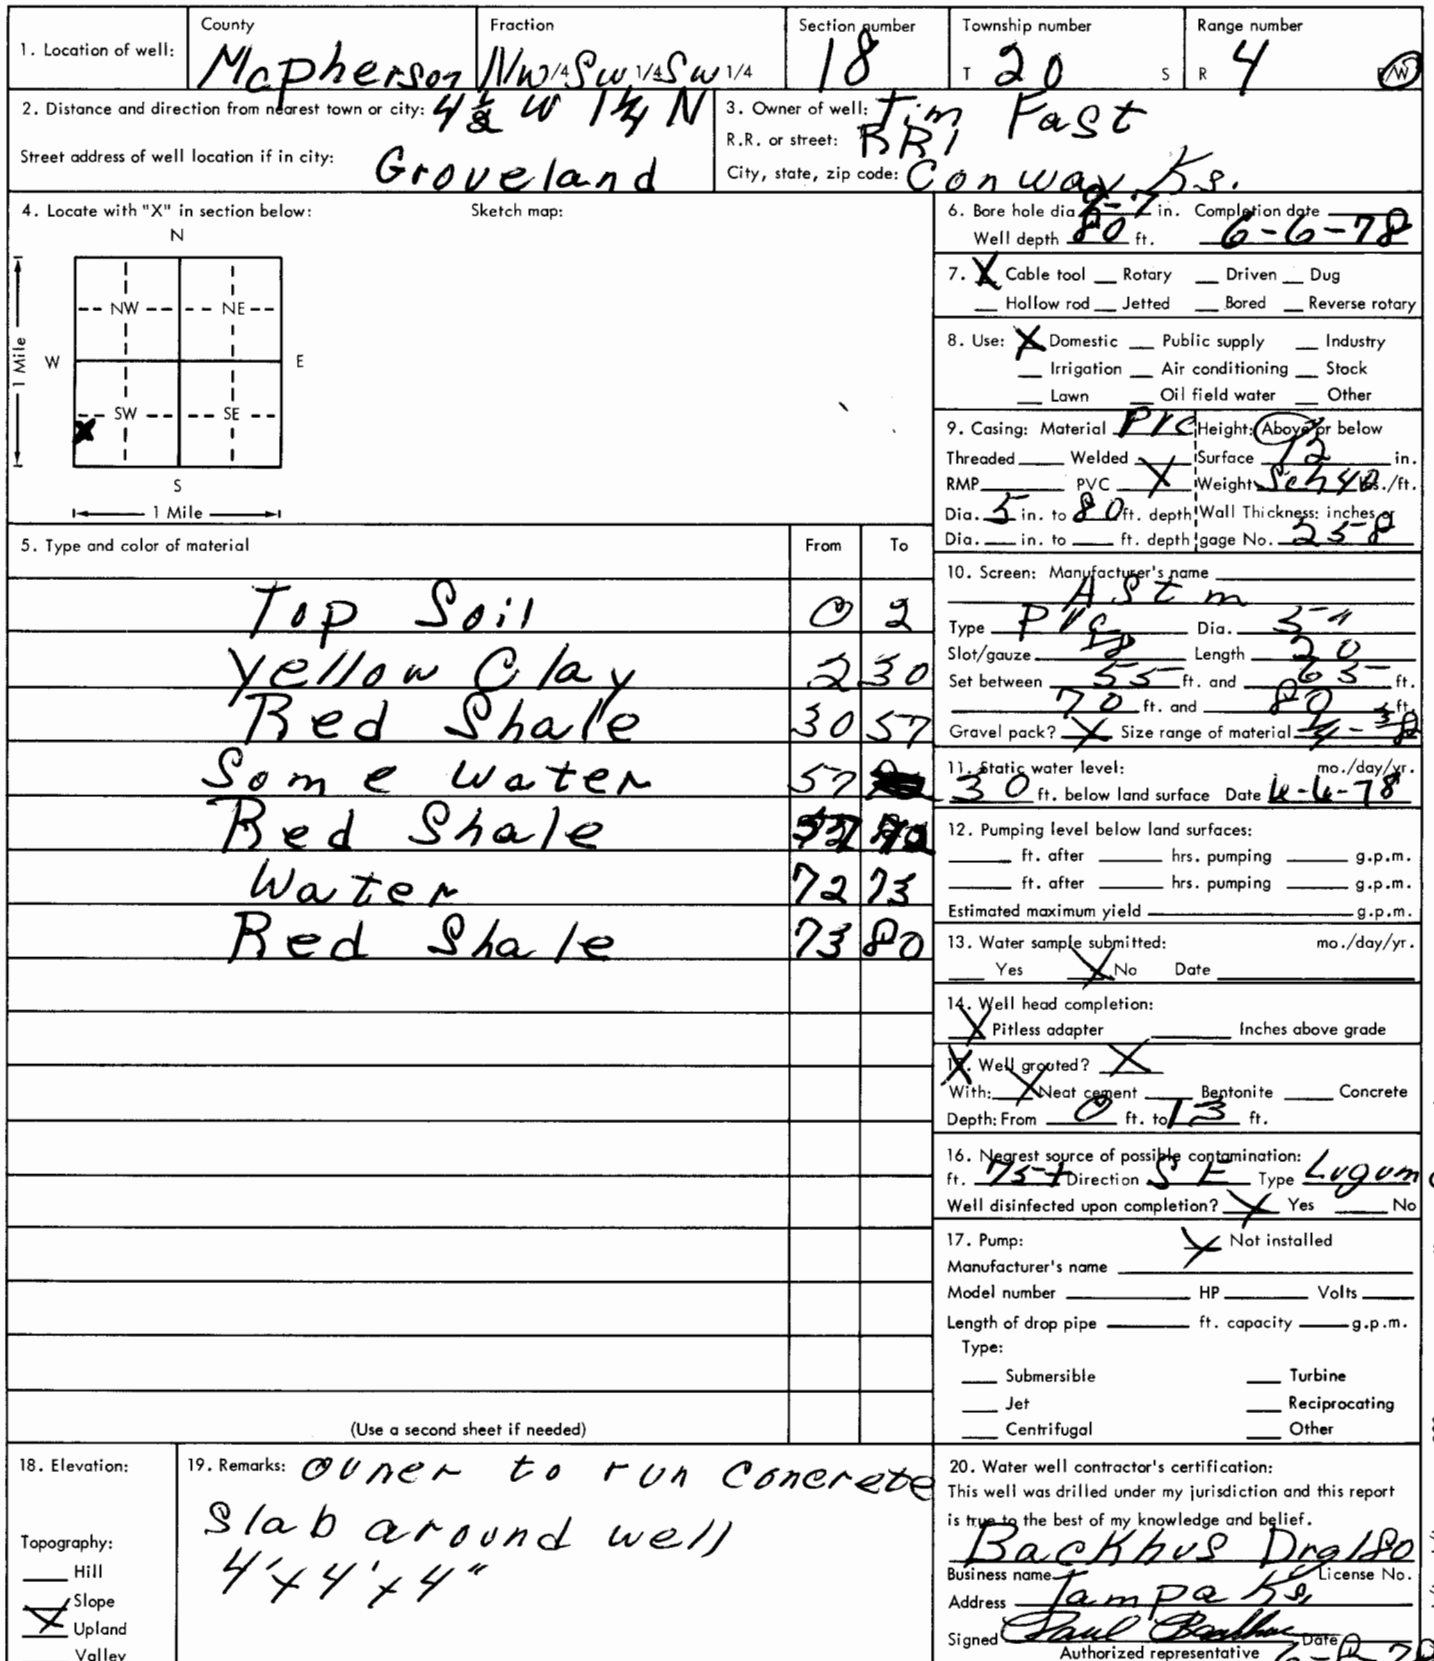 1. Location of well: County Mcpherson Fraction NW 1/4 SW 1/4 SW 1/4 Section number 18 Township number T 20 S Range number R 4 W
2. Distance and direction from nearest town or city: 4 1/2 W 1 1/4 N
Street address of well location if in city: Groveland
3. Owner of well: Tim Fast
R.R. or street: RR1
City, state, zip code: Conway Ks.
4. Locate with "X" in section below: Sketch map:
N
NW NE
W E
1 Mile
SW SE
X
S
1 Mile
5. Type and color of material From To
Top Soil 0 2
Yellow Clay 2 30
Red Shale 30 57
Some Water 57
Red Shale
Water 72 73
Red Shale 73 80
(Use a second sheet if needed)
6. Bore hole dia. in. Completion date
Well depth 80 ft. 6-6-78
7. X Cable tool Rotary Driven Dug
Hollow rod Jetted Bored Reverse rotary
8. Use: X Domestic Public supply Industry
Irrigation Air conditioning Stock
Lawn Oil field water Other
9. Casing: Material PVC Height: Above or below
Threaded Welded Surface 12 in.
RMP PVC X Weight Sch 40 lbs./ft.
Dia. 5 in. to 80 ft. depth Wall Thickness: inches or
Dia. in. to ft. depth gage No. 258
10. Screen: Manufacturer's name
ASTM
Type PVC Dia. 5"
Slot/gauze Length 20
Set between 55 ft. and 65 ft.
70 ft. and 80 ft.
Gravel pack? X Size range of material
11. Static water level: mo./day/yr.
30 ft. below land surface Date 6-6-78
12. Pumping level below land surfaces:
ft. after hrs. pumping g.p.m.
ft. after hrs. pumping g.p.m.
Estimated maximum yield g.p.m.
13. Water sample submitted: mo./day/yr.
Yes X No Date
14. Well head completion:
X Pitless adapter Inches above grade
15. Well grouted? X
With: X Neat cement Bentonite Concrete
Depth: From 0 ft. to 13 ft.
16. Nearest source of possible contamination:
ft. 75+ Direction SE Type Lugum
Well disinfected upon completion? X Yes No
17. Pump: X Not installed
Manufacturer's name
Model number HP Volts
Length of drop pipe ft. capacity g.p.m.
Type:
Submersible Turbine
Jet Reciprocating
Centrifugal Other
18. Elevation:
Topography:
Hill
Slope
X Upland
Valley
19. Remarks: Owner to run concrete
Slab around well
4'x4'x4"
20. Water well contractor's certification:
This well was drilled under my jurisdiction and this report
is true to the best of my knowledge and belief.
Backhus Drg 180
Business name License No.
Address Tampa Ks.
Signed Paul Backhus Date
Authorized representative